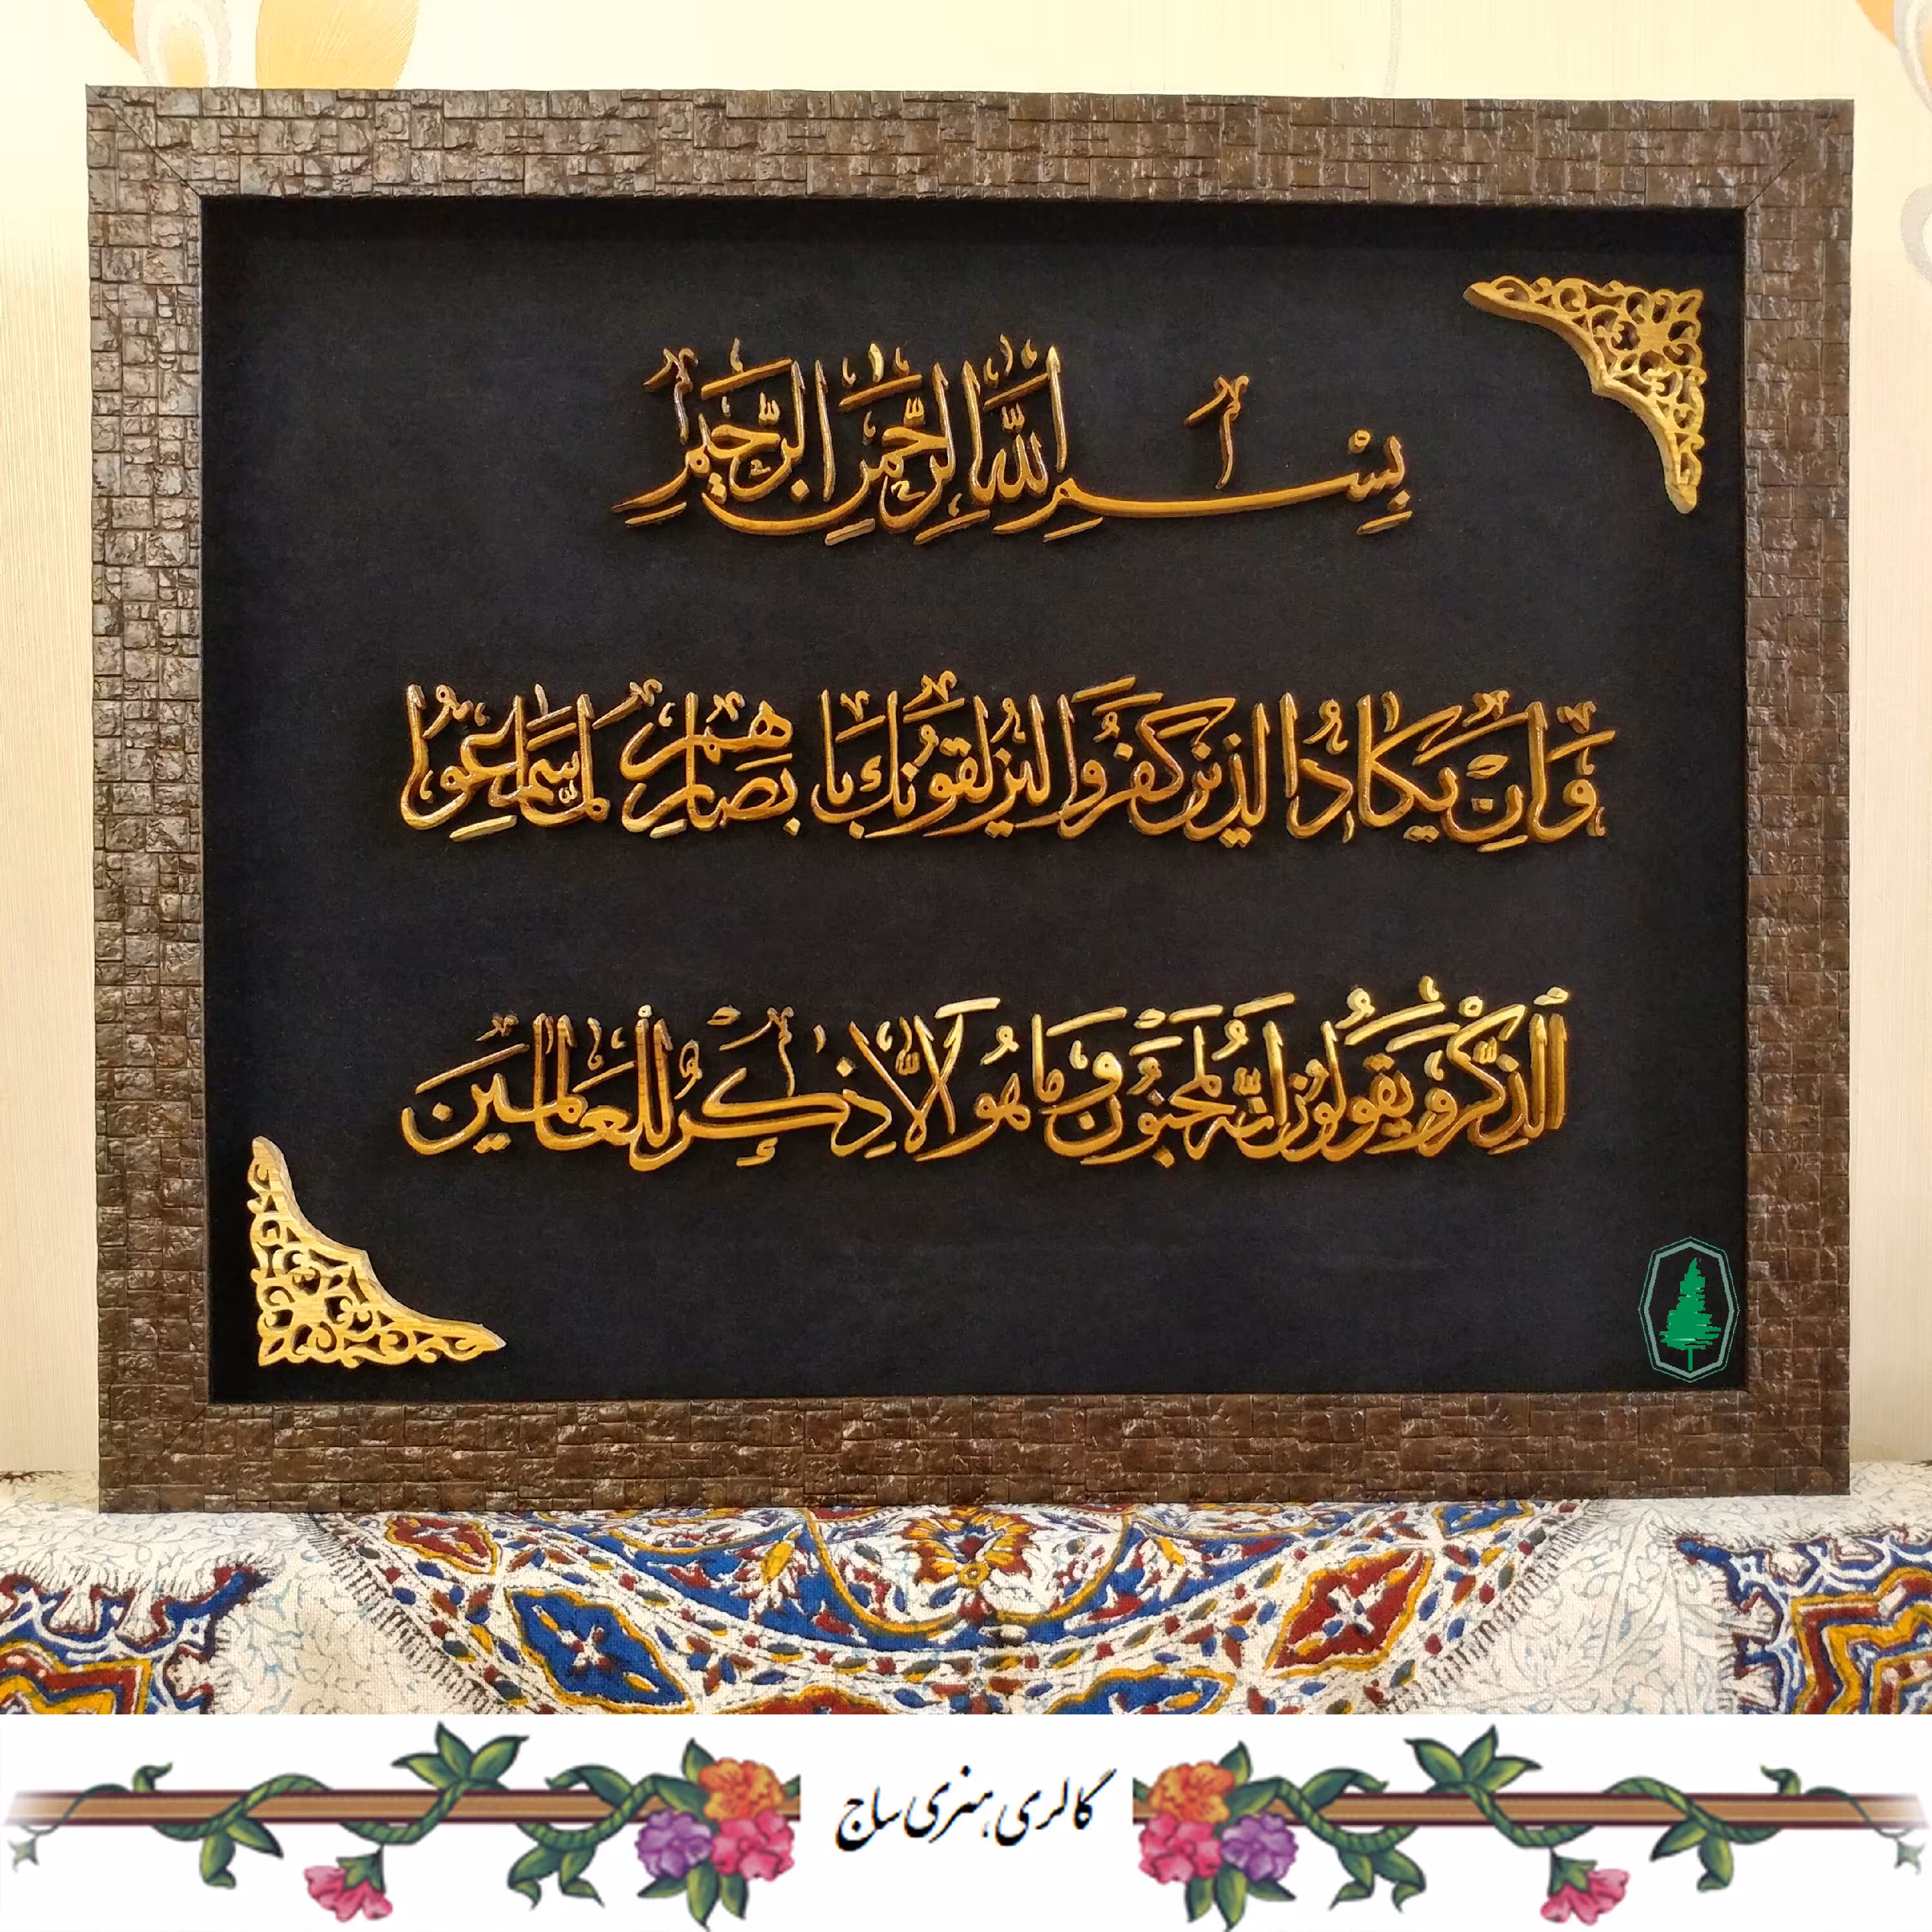 بِسْمِ اللَّهِ الرَّحْمَنِ الرَّحِيمِ
وَإِنْ يَكَادُ الَّذِينَ كَفَرُوا لَيُزْلِقُونَكَ بِأَبْصَارِهِمْ لَمَّا سَمِعُوا
الذِّكْرَ وَيَقُولُونَ إِنَّهُ لَمَجْنُونٌ وَمَا هُوَ إِلَّا ذِكْرٌ لِلْعَالَمِينَ
گالری هنری ساج